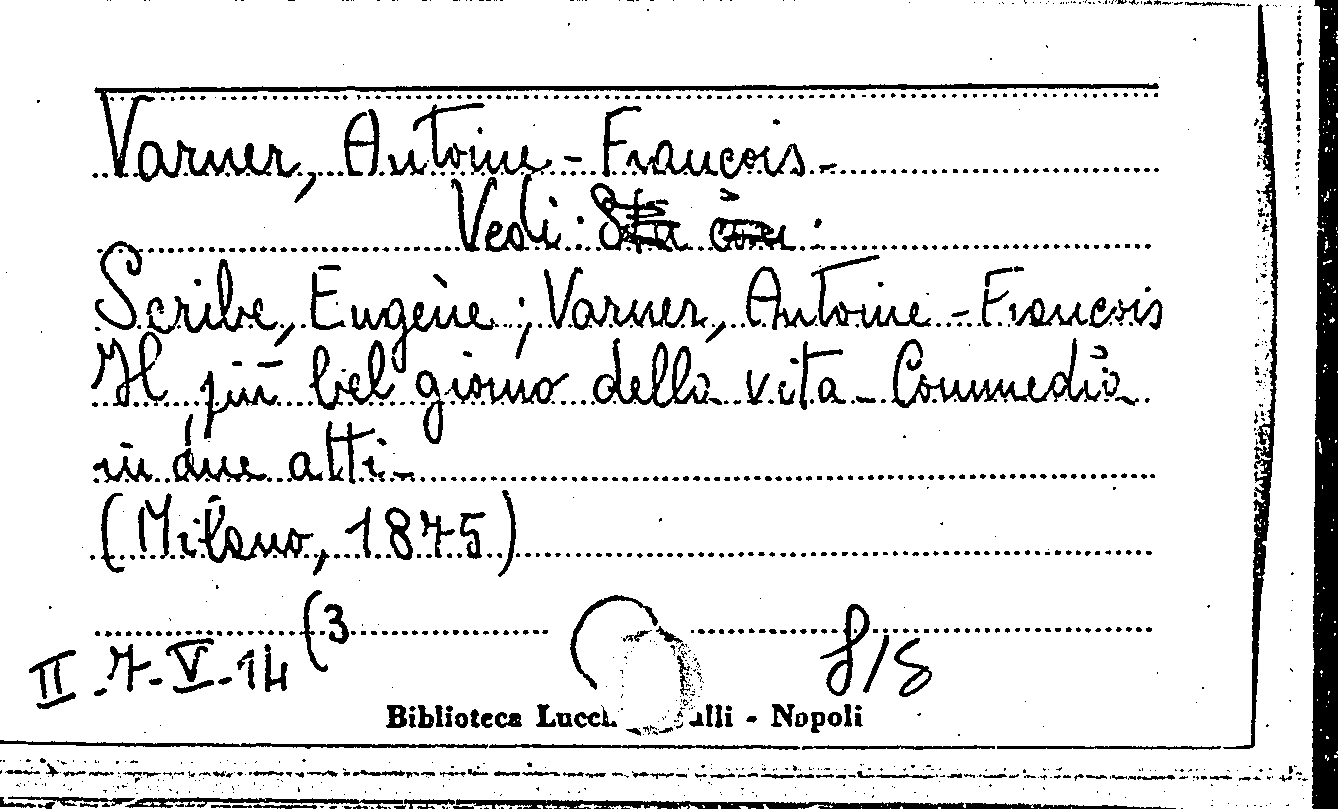 Varner, Antoine-François-
Vedi:
Scribe, Eugène; Varner, Antoine-François
Il più bel giorno della vita - Commedia
in due atti-
(Milano, 1875)
II-7-V-14 (3
Biblioteca - Napoli